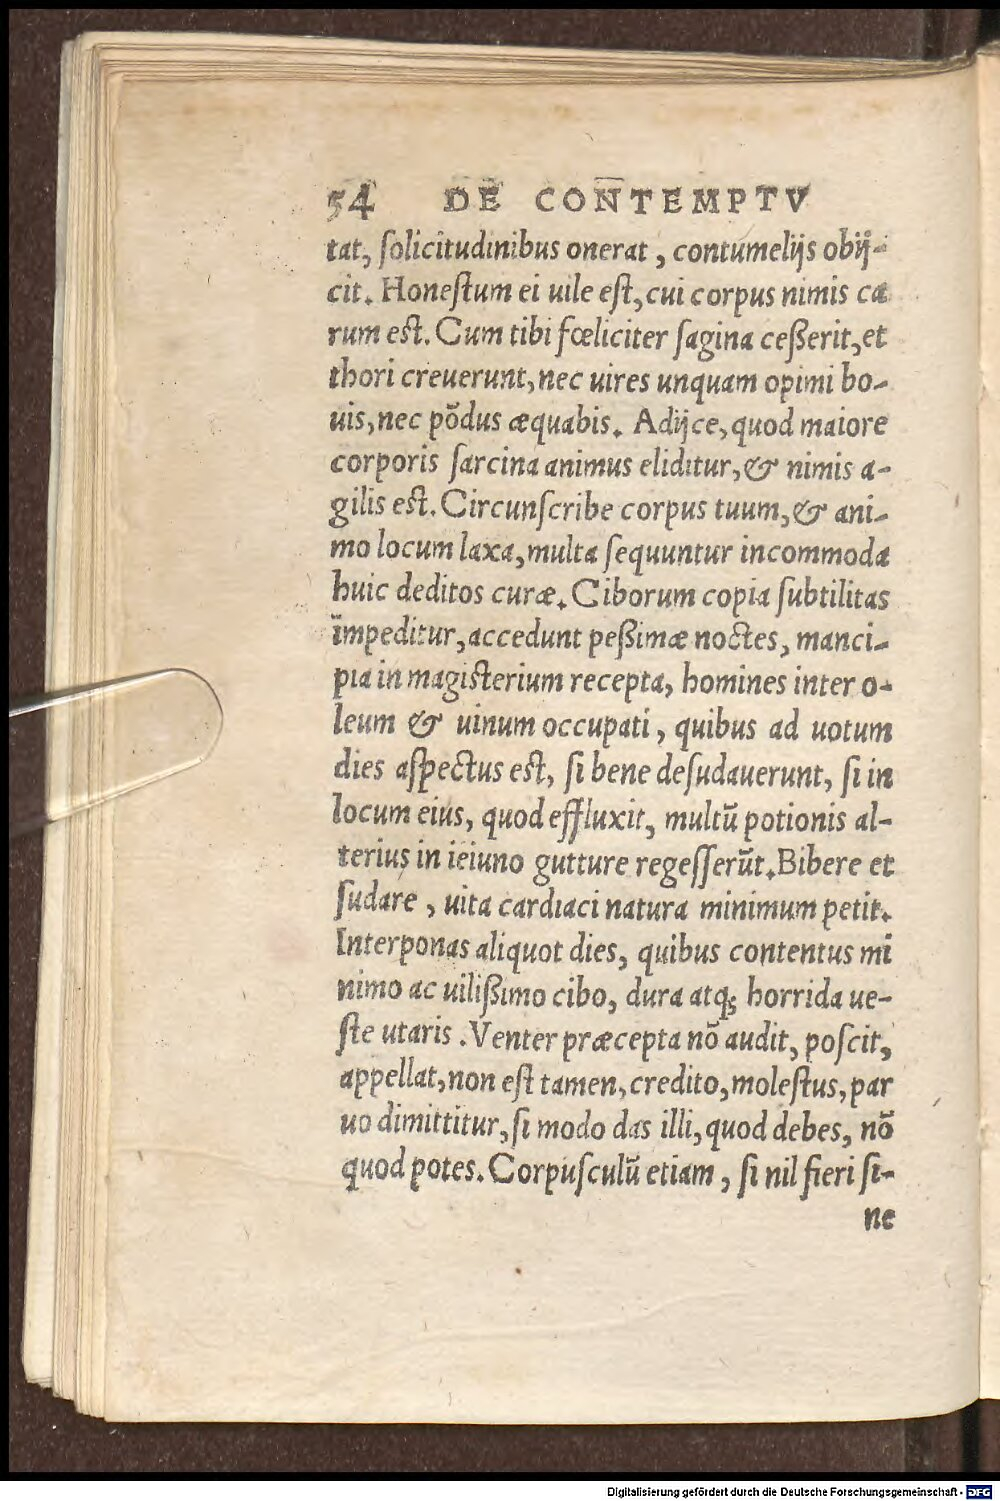 54 DE CONTEMPTV
tat, ſolicitudinibus onerat, contumelijs obij-
cit. Honeſtum ei uile eſt, cui corpus nimis ca
rum est. Cum tibi fœliciter ſagina ceßerit, et
thori creuerunt, nec uires unquam opimi bo-
uis, nec põdus æquabis. Adijce, quod maiore
corporis ſarcina animus eliditur, & nimis a-
gilis est. Circunſcribe corpus tuum, & ani-
mo locum laxa, multa ſequuntur incommoda
huic deditos curæ. Ciborum copia ſubtilitas
impeditur, accedunt peßimæ noctes, manci-
pia in magisterium recepta, homines inter o-
leum & uinum occupati, quibus ad uotum
dies aſpectus est, ſi bene deſudauerunt, ſi in
locum eius, quod effluxit, multũ potionis al-
terius in ieiuno gutture regeſſerũt. Bibere et
ſudare, uita cardiaci natura minimum petit.
Interponas aliquot dies, quibus contentus mi
nimo ac uilißimo cibo, dura atq; horrida ue-
ſte utaris. Venter præcepta nõ audit, poſcit,
appellat, non eſt tamen, credito, moleſtus, par
uo dimittitur, ſi modo das illi, quod debes, nõ
quod potes. Corpuſculũ etiam, ſi nil fieri ſi-
ne
Digitalisierung gefördert durch die Deutsche Forschungsgemeinschaft - DFG